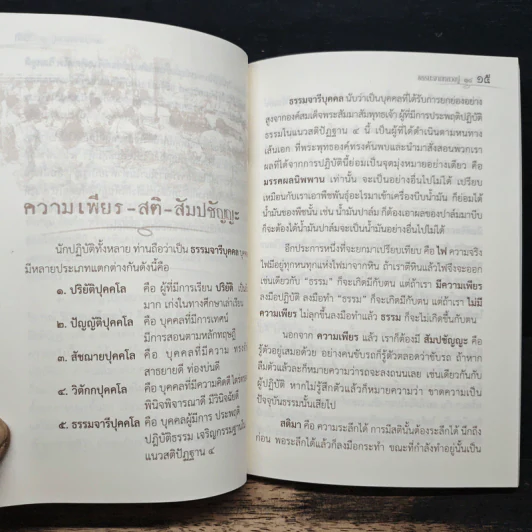 ความเพียร-สติ-สัมปชัญญะ
นักปฏิบัติทั้งหลาย ท่านถือว่าเป็น ธรรมจารีบุคคล
มีหลายประเภทแตกต่างกันดังนี้คือ
๑. ปริยัติปุคคโล คือ ผู้ที่มีการเรียน ปริยัติ
มาก เก่งในทางศึกษาเล่าเรียน
๒. ปัญญัติปุคคโล คือ บุคคลที่มีการเทศน์
มีการสอนตามหลักทฤษฎี
๓. สัชฌายปุคคโล คือ บุคคลที่มีความ
สาธยายดี ท่องบ่นดี
๔. วิตักกปุคคโล คือ บุคคลที่มีความคิดดี
พินิจพิจารณาดี มีวินิจฉัยดี
๕. ธรรมจารีปุคคโล คือ บุคคลผู้มีการ ประพฤติ
ปฏิบัติธรรม เจริญกรรมฐานใน
แนวสติปัฏฐาน ๔
๑๕
ธรรมจารีบุคคล นับว่าเป็นบุคคลที่ได้รับการยกย่องอย่าง
สูงจากองค์สมเด็จพระสัมมาสัมพุทธเจ้า ผู้ที่มีการประพฤติปฏิบัติ
ธรรมในแนวสติปัฏฐาน ๔ นี้ เป็นผู้ที่ได้ดำเนินตามหนทาง
เส้นเอก ที่พระพุทธองค์ทรงค้นพบและนำมาสั่งสอนพวกเรา
ผลที่ได้จากการปฏิบัตินี้ย่อมเป็นจุดมุ่งหมายอย่างเดียว คือ
มรรคผลนิพพาน เท่านั้น จะเป็นอย่างอื่นไปไม่ได้ เปรียบ
เหมือนกับเราเอาพืชพันธุ์อะไรมาเข้าเครื่องบีบน้ำมัน ก็ย่อมได้
น้ำมันของพืชนั้น เช่น น้ำมันปาล์ม ก็ต้องเอาผลของปาล์มมาบีบ
ก็จะต้องได้น้ำมันปาล์มจะเป็นน้ำมันอย่างอื่นไปไม่ได้
อีกประการหนึ่งที่จะยกมาเปรียบเทียบ คือ ไฟ ความจริง
ไฟมีอยู่ทุกหนทุกแห่งไฟมาจากหิน ถ้าเราตีหินแล้วไฟจึงจะออก
เช่นเดียวกับ “ธรรม” ก็จะเกิดมีกับตน แต่ถ้าเรา มีความเพียร
ลงมือปฏิบัติ ลงมือทำ “ธรรม” ก็จะเกิดมีกับตน แต่ถ้าเรา ไม่มี
ความเพียร ไม่ลุกขึ้นลงมือทำแล้ว ธรรม ก็จะไม่เกิดขึ้นกับตน
นอกจาก ความเพียร แล้ว เราก็ต้องมี สัมปชัญญะ คือ
รู้ตัวอยู่เสมอด้วย อย่างคนขับรถก็รู้ตัวตลอดว่าขับรถ ถ้าหาก
ลืมตัวแล้วก็หมายความว่ารถจะลงถนนเลย เช่นเดียวกันกับ
ผู้ปฏิบัติ หากไม่รู้สึกตัวแล้วก็หมายความว่า ขาดความเป็น
ปัจจุบันธรรมนั้นเสียไป
สติมา คือ ความระลึกได้ การมีสตินั้นต้องระลึกได้ นึกถึง
ก่อน พอระลึกได้แล้วก็ลงมือกระทำ ขณะที่กำลังทำอยู่นั้นเป็น